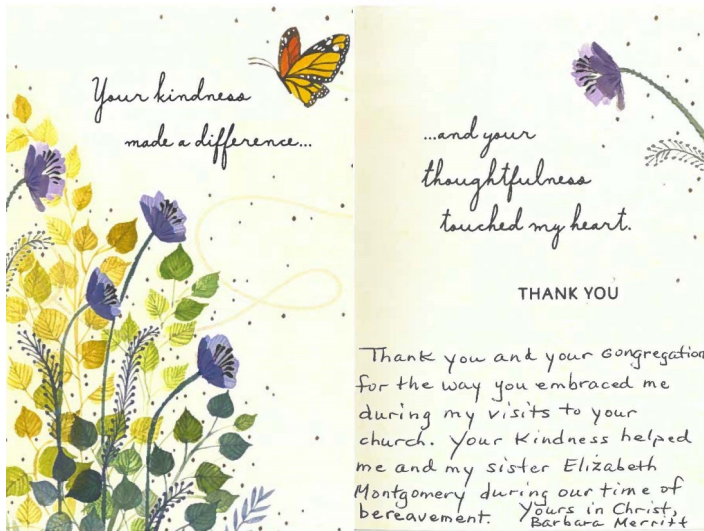 Your kindness
made a difference...
...and your
thoughtfulness
touched my heart.
THANK YOU
Thank you and your congregation
for the way you embraced me
during my visits to your
church. Your kindness helped
me and my sister Elizabeth
Montgomery during our time of
bereavement. Yours in Christ,
Barbara Merritt